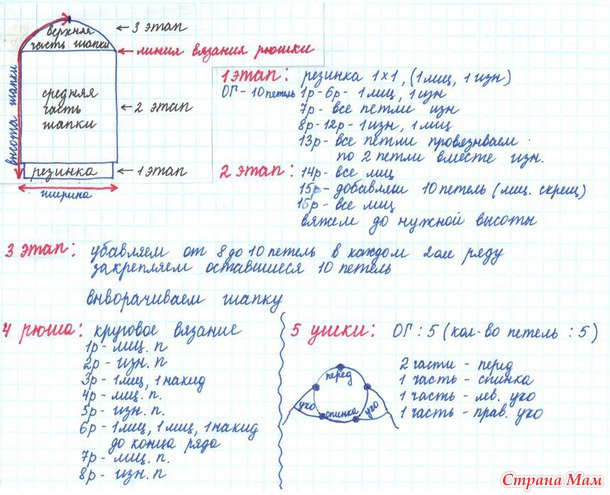 верхняя
часть шапки
← 3 этап
← линия вязания рюшки
высота шапки
средняя
часть
шапки
← 2 этап
резинка
← 1 этап
ширина
1 этап: резинка 1х1, (1 лиц, 1 изн)
ОГ-10 петель
1р-6р- 1 лиц, 1 изн
7р- все петли изн
8р-12р-1 изн, 1 лиц
13р- все петли провязываем
по 2 петли вместе изн.
2 этап: 14р- все лиц
15р- добавляем 10 петель (лиц. скрещ)
16р- все лиц
вяжем до нужной высоты
3 этап: убавляем от 8 до 10 петель в каждом 2ом ряду
закрепляем оставшиеся 10 петель
выворачиваем шапку
4 рюша: круговое вязание
1р- лиц. п
2р- изн. п
3р- 1 лиц, 1 накид
4р- лиц. п.
5р- изн. п.
6р- 1 лиц, 1 лиц, 1 накид
до конца ряда
7р- лиц. п.
8р- изн. п
5 ушки: ОГ: 5 (кол-во петель: 5)
перед
ухо
спинка
ухо
2 части - перед
1 часть - спинка
1 часть - лев. ухо
1 часть - прав. ухо
Страна Мам